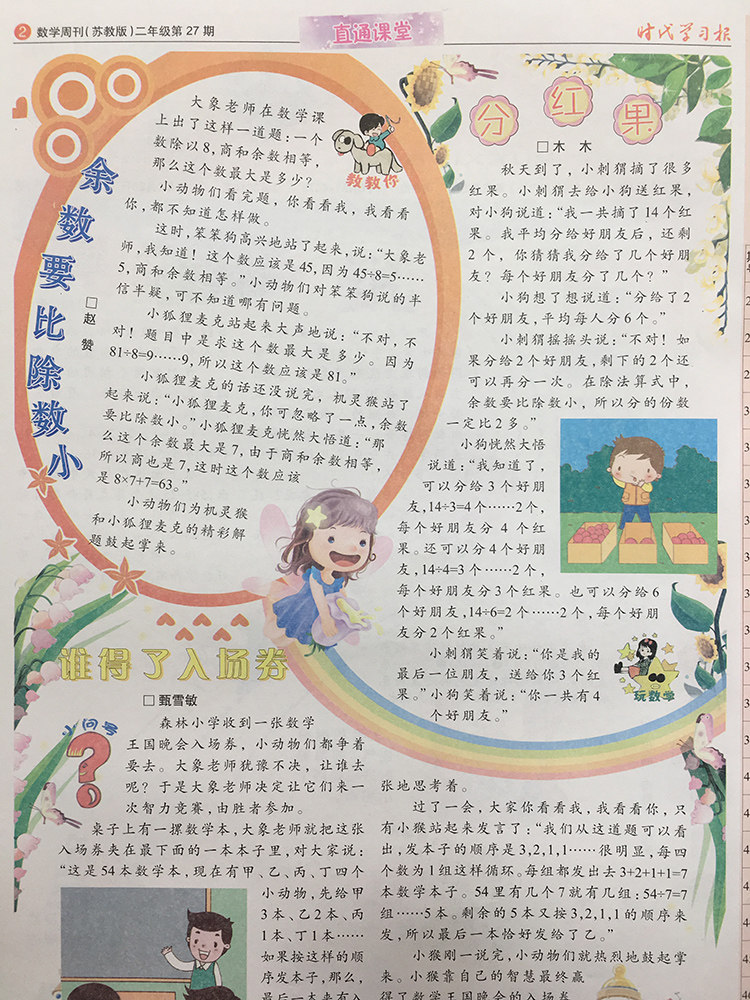 2 数学周刊(苏教版)二年级第27期
直通课堂
时代学习报
余数要比除数小
□赵 赞
大象老师在数学课
上出了这样一道题:一个
数除以8,商和余数相等,
那么这个数最大是多少?
小动物们看完题,你看看我,我看看
你,都不知道怎样做。
这时,笨笨狗高兴地站了起来,说:“大象老
师,我知道!这个数应该是45,因为45÷8=5……
5,商和余数相等。”小动物们对笨笨狗说的半
信半疑,可不知道哪有问题。
小狐狸麦克站起来大声地说:“不对,不
对!题目中是求这个数最大是多少。因为
81÷8=9……9,所以这个数应该是81。”
小狐狸麦克的话还没说完,机灵猴站了
起来说:“小狐狸麦克,你可忽略了一点,余数
要比除数小。”小狐狸麦克恍然大悟道:“那
么这个余数最大是7,由于商和余数相等,
所以商也是7,这时这个数应该
是8×7+7=63。”
小动物们为机灵猴
和小狐狸麦克的精彩解
题鼓起掌来。
教教你
分红果
□木 木
秋天到了,小刺猬摘了很多
红果。小刺猬去给小狗送红果,
对小狗说道:“我一共摘了14个红
果。我平均分给好朋友后,还剩
2个,你猜猜我分给了几个好朋
友?每个好朋友分了几个?”
小狗想了想说道:“分给了2
个好朋友,平均每人分6个。”
小刺猬摇摇头说:“不对!如
果分给2个好朋友,剩下的2个还
可以再分一次。在除法算式中,
余数要比除数小,所以分的份数
一定比2多。”
小狗恍然大悟
说道:“我知道了,
可以分给3个好朋
友,14÷3=4个……2个,
每个好朋友分4个红
果。还可以分4个好朋
友,14÷4=3个……2个,
每个好朋友分3个红果。也可以分给6
个好朋友,14÷6=2个……2个,每个好朋
友分2个红果。”
小刺猬笑着说:“你是我的
最后一位朋友,送给你3个红
果。”小狗笑着说:“你一共有4
个好朋友。”
玩数学
谁得了入场券
□甄雪敏
小问号
森林小学收到一张数学
王国晚会入场券,小动物们都争着
要去。大象老师犹豫不决,让谁去
呢?于是大象老师决定让它们来一
次智力竞赛,由胜者参加。
桌子上有一摞数学本,大象老师就把这张
入场券夹在最下面的一本本子里,对大家说:
“这是54本数学本,现在有甲、乙、丙、丁四个
小动物,先给甲
3本、乙2本、丙
1本、丁1本……
如果按这样的顺
序发本子,那么,
最后一本夹有入
张地思考着。
过了一会,大家你看看我,我看看你,只
有小猴站起来发言了:“我们从这道题可以看
出,发本子的顺序是3,2,1,1……很明显,每四
个数为1组这样循环。每组都发出去3+2+1+1=7
本数学本子。54里有几个7就有几组:54÷7=7
组……5本。剩余的5本又按3,2,1,1的顺序来
发,所以最后一本恰好发给了乙。”
小猴刚一说完,小动物们就热烈地鼓起掌
来。小猴靠自己的智慧最终赢
得了数学王国晚会的入场券。